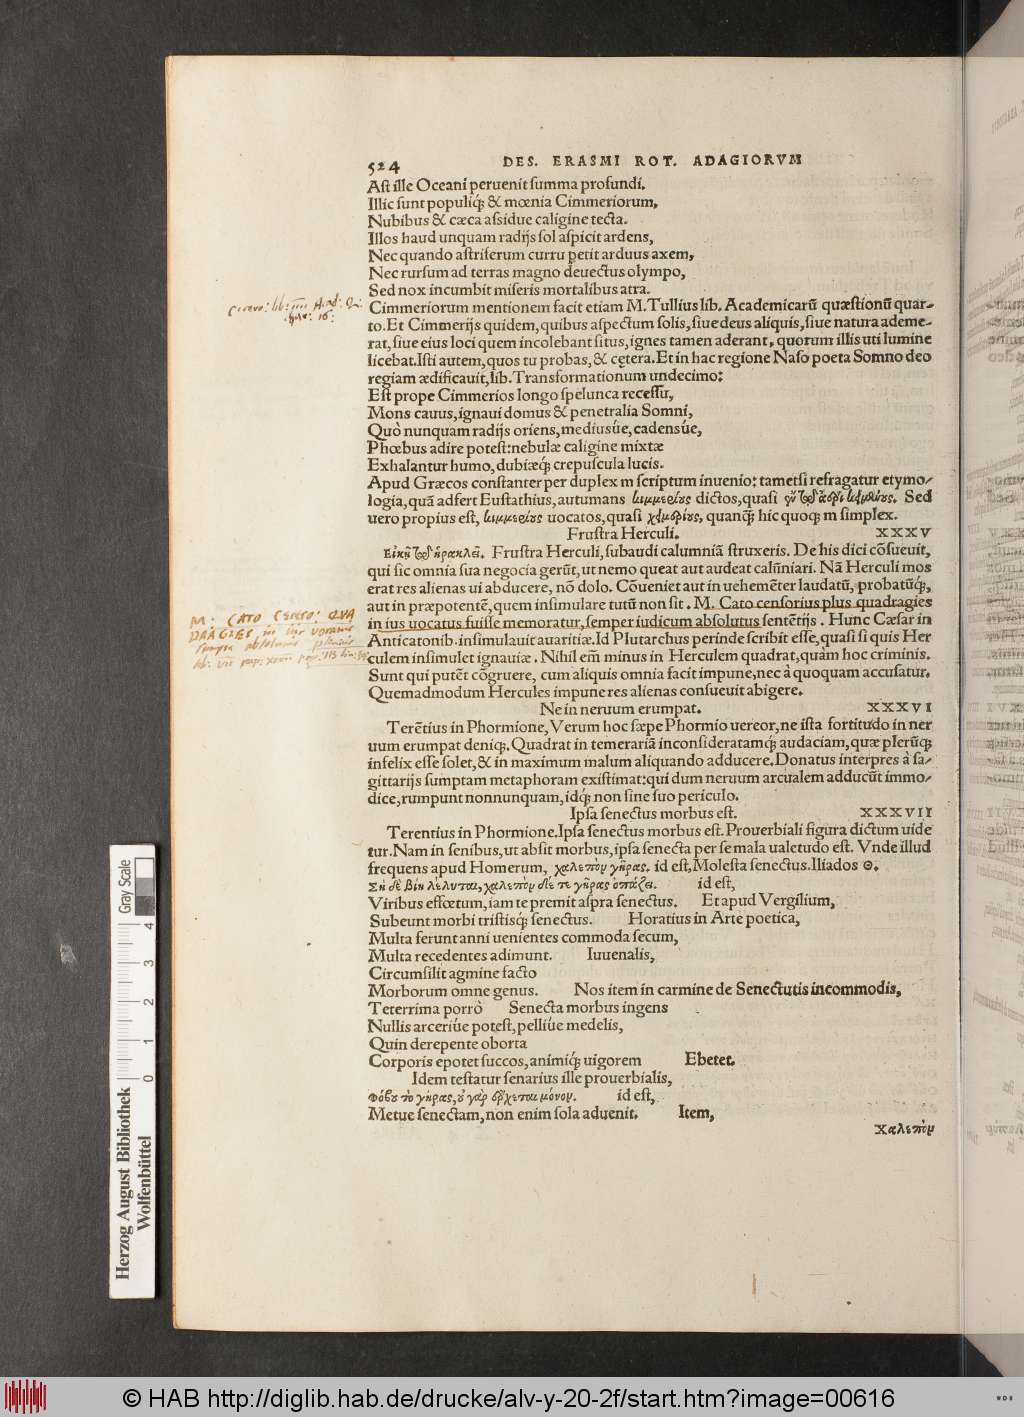 524 DES. ERASMI ROT. ADAGIORVM
Aſt ille Oceani peruenit ſumma profundi.
Illic ſunt populiq́; & mœnia Cimmeriorum,
Nubibus & cæca aſsidue caligine tecta.
Illos haud unquam radijs ſol aſpicit ardens,
Nec quando aſtriferum curru petit arduus axem,
Nec rurſum ad terras magno deuectus olympo,
Sed nox incumbit miſeris mortalibus atra.
Cimmeriorum mentionem facit etiam M. Tullius lib. Academicarū quæſtionū quar-
to. Et Cimmerijs quidem, quibus aſpectum ſolis, ſiue deus aliquis, ſiue natura ademe-
rat, ſiue eius loci quem incolebant ſitus, ignes tamen aderant, quorum illis uti lumine
licebat. Iſti autem, quos tu probas, & cętera. Et in hac regione Naſo poeta Somno deo
regiam ædificauit, lib. Transformationum undecimo:
Eſt prope Cimmerios longo ſpelunca receſſu,
Mons cauus, ignaui domus & penetralia Somni,
Quò nunquam radijs oriens, mediusúe, cadensúe,
Phœbus adire poteſt: nebulæ caligine mixtæ
Exhalantur humo, dubiæq́; crepuſcula lucis.
Apud Græcos conſtanter per duplex m ſcriptum inuenio: tametſi refragatur etymo-
logia, quā adfert Euſtathius, autumans κιμμερίους dictos, quaſi Sed
uero propius eſt, κιμμερίους uocatos, quaſi χειμερίους, quanq̄; hic quoq; m ſimplex.
Fruſtra Herculi. XXXV
Εἰκῆ τῷ ἡρακλεῖ. Fruſtra Herculi, ſubaudi calumniā ſtruxeris. De his dici cōſueuit,
qui ſic omnia ſua negocia gerūt, ut nemo queat aut audeat calūniari. Nā Herculi mos
erat res alienas ui abducere, nō dolo. Cōueniet aut in uehemēter laudatū, probatūq́;,
aut in præpotentē, quem inſimulare tutū non ſit. M. Cato cenſorius plus quadragies
in ius uocatus fuiſſe memoratur, ſemper iudicum abſolutus ſentētijs. Hunc Cæſar in
Anticatonib. inſimulauit auaritiæ. Id Plutarchus perinde ſcribit eſſe, quaſi ſi quis Her
culem inſimulet ignauiæ. Nihil em̄ minus in Herculem quadrat, quàm hoc criminis.
Sunt qui putēt cōgruere, cum aliquis omnia facit impune, nec à quoquam accuſatur.
Quemadmodum Hercules impune res alienas conſueuit abigere.
Ne in neruum erumpat. XXXVI
Terētius in Phormione, Verum hoc ſæpe Phormio uereor, ne iſta fortitudo in ner
uum erumpat deniq́;. Quadrat in temerariā inconſideratamq́; audaciam, quæ plerūq́;
infelix eſſe ſolet, & in maximum malum aliquando adducere. Donatus interpres à ſa-
gittarijs ſumptam metaphoram exiſtimat: qui dum neruum arcualem adducūt immo-
dice, rumpunt nonnunquam, idq́; non ſine ſuo periculo.
Ipſa ſenectus morbus eſt. XXXVII
Terentius in Phormione. Ipſa ſenectus morbus eſt. Prouerbiali figura dictum uide
tur. Nam in ſenibus, ut abſit morbus, ipſa ſenecta per ſe mala ualetudo eſt. Vnde illud
frequens apud Homerum, χαλεπὸν γῆρας. id eſt, Moleſta ſenectus. Iliados Θ.
Σὴ δὲ βίη λέλυται, χαλεπὸν δέ τε γῆρας ὀπάζει. id eſt,
Viribus effœtum, iam te premit aſpra ſenectus. Et apud Vergilium,
Subeunt morbi triſtisq́; ſenectus. Horatius in Arte poetica,
Multa ferunt anni uenientes commoda ſecum,
Multa recedentes adimunt. Iuuenalis,
Circumſilit agmine facto
Morborum omne genus. Nos item in carmine de Senectutis incommodis,
Teterrima porrò Senecta morbus ingens
Nullis arceriúe poteſt, pelliúe medelis,
Quin derepente oborta
Corporis epotet ſuccos, animiq́; uigorem Ebetet.
Idem teſtatur ſenarius ille prouerbialis,
Φόβου τὸ γῆρας, οὐ γὰρ ἔρχεται μόνον. id eſt,
Metue ſenectam, non enim ſola aduenit. Item,
Χαλεπὸν
Cicero: lib: iiii Acad: Q:
M: CATO CENSO: QVA
DRAGIES
Gray Scale
0 1 2 3 4
Herzog August Bibliothek
Wolfenbüttel
© HAB http://diglib.hab.de/drucke/alv-y-20-2f/start.htm?image=00616